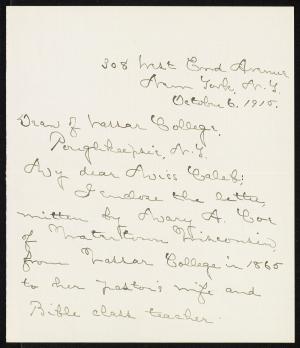 308 West End Avenue
New York, N.Y.
October 6. 1915.
Dean of Vassar College,
Poughkeepsie, N.Y.
My dear Miss
I enclose the letter,
written by Mary A. Coe
of Watertown Wisconsin,
from Vassar College in 1865
to her pastor's wife and
Bible class teacher.